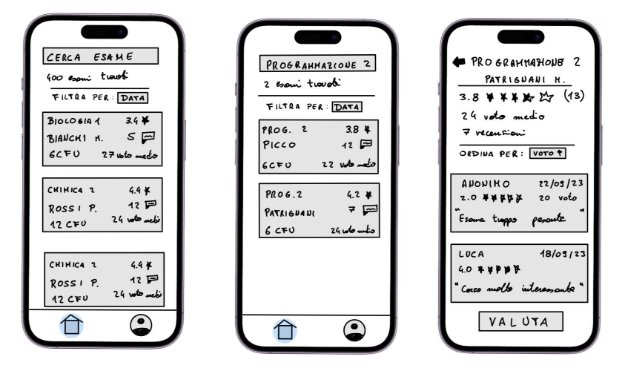 CERCA ESAME
400 esami trovati
FILTRA PER: DATA
BIOLOGIA 1 3.4
BIANCHI M. 5
6 CFU 27 voto medio
CHIMICA 2 4.4
ROSSI P. 12
12 CFU 24 voto medio
CHIMICA 2 4.4
ROSSI P. 12
12 CFU 24 voto medio
PROGRAMMAZIONE 2
2 esami trovati
FILTRA PER: DATA
PROG. 2 3.8
PICCO 12
6 CFU 22 voto medio
PROG. 2 4.2
PATRIGNANI 7
6 CFU 24 voto medio
PROGRAMMAZIONE 2
PATRIGNANI M.
3.8 (13)
24 voto medio
7 recensioni
ORDINA PER: VOTO ↑
ANONIMO 22/09/23
2.0 20 voto
"Esame troppo pesante"
LUCA 18/09/23
4.0
"Corso molto interessante"
VALUTA